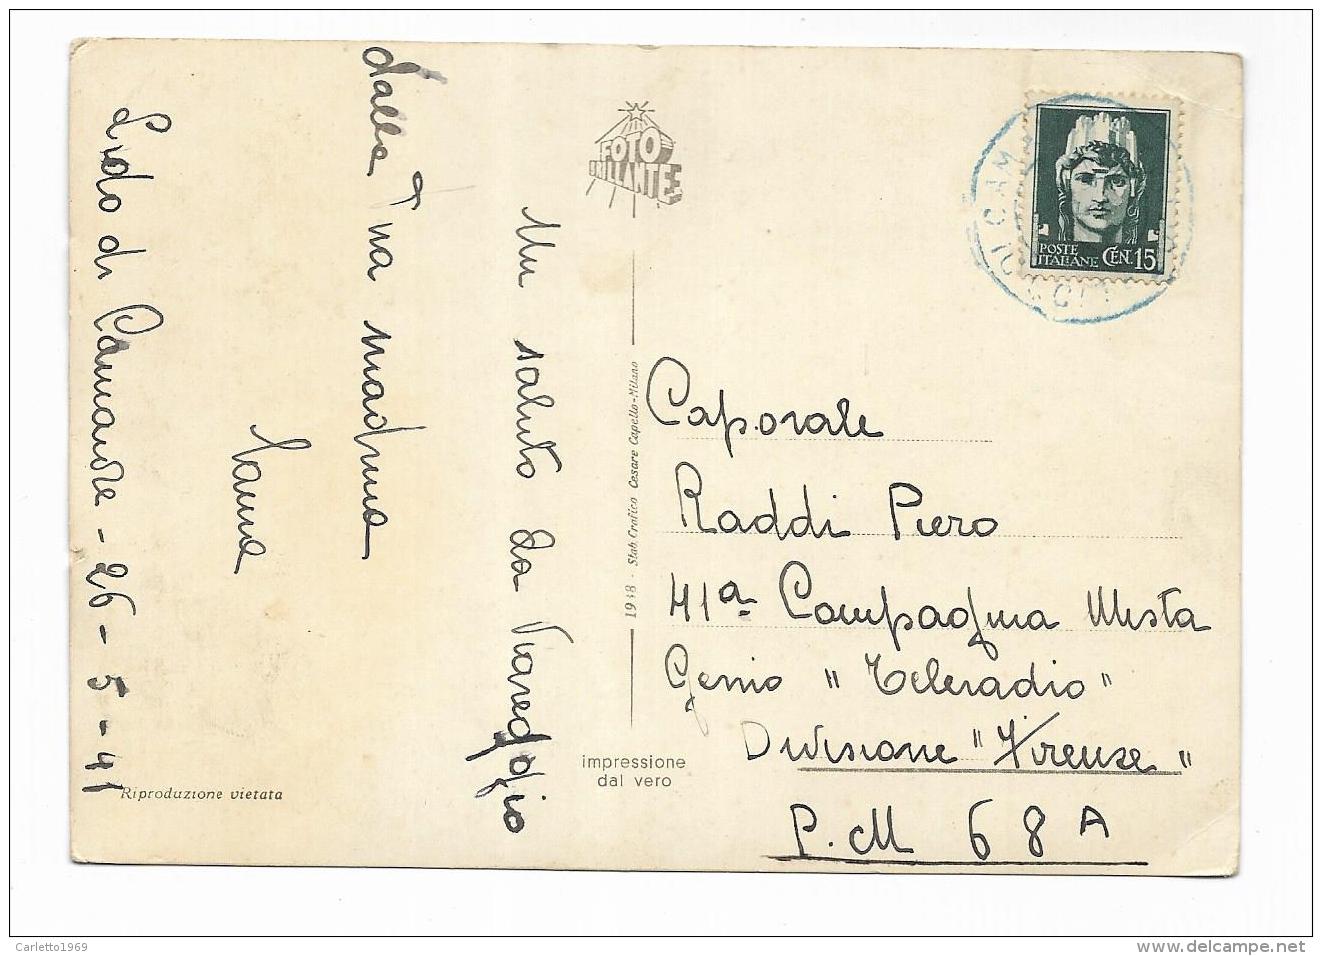 Un saluto da Viareggio
dalla Tua madrina
Lido di Camaiore - 26 - 5 - 41
FOTO
BRILLANTE
1938 - Stab. Grafico Cesare Capello-Milano
impressione
dal vero
Riproduzione vietata
POSTE
ITALIANE CEN. 15
Caporale
Raddi Piero
41ª Compagnia Mista
Genio "Teleradio"
Divisione "Firenze"
P.M 68 A
Carletto1969
delcampe.net